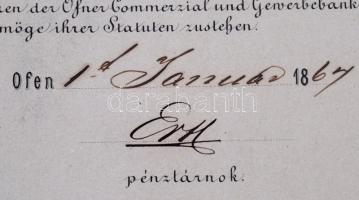 ren der Ofner Commerzial und Gewerbebank
möge ihrer Statuten zustehen.
Ofen 1t Januar 1867
Ertl
pénztárnok.